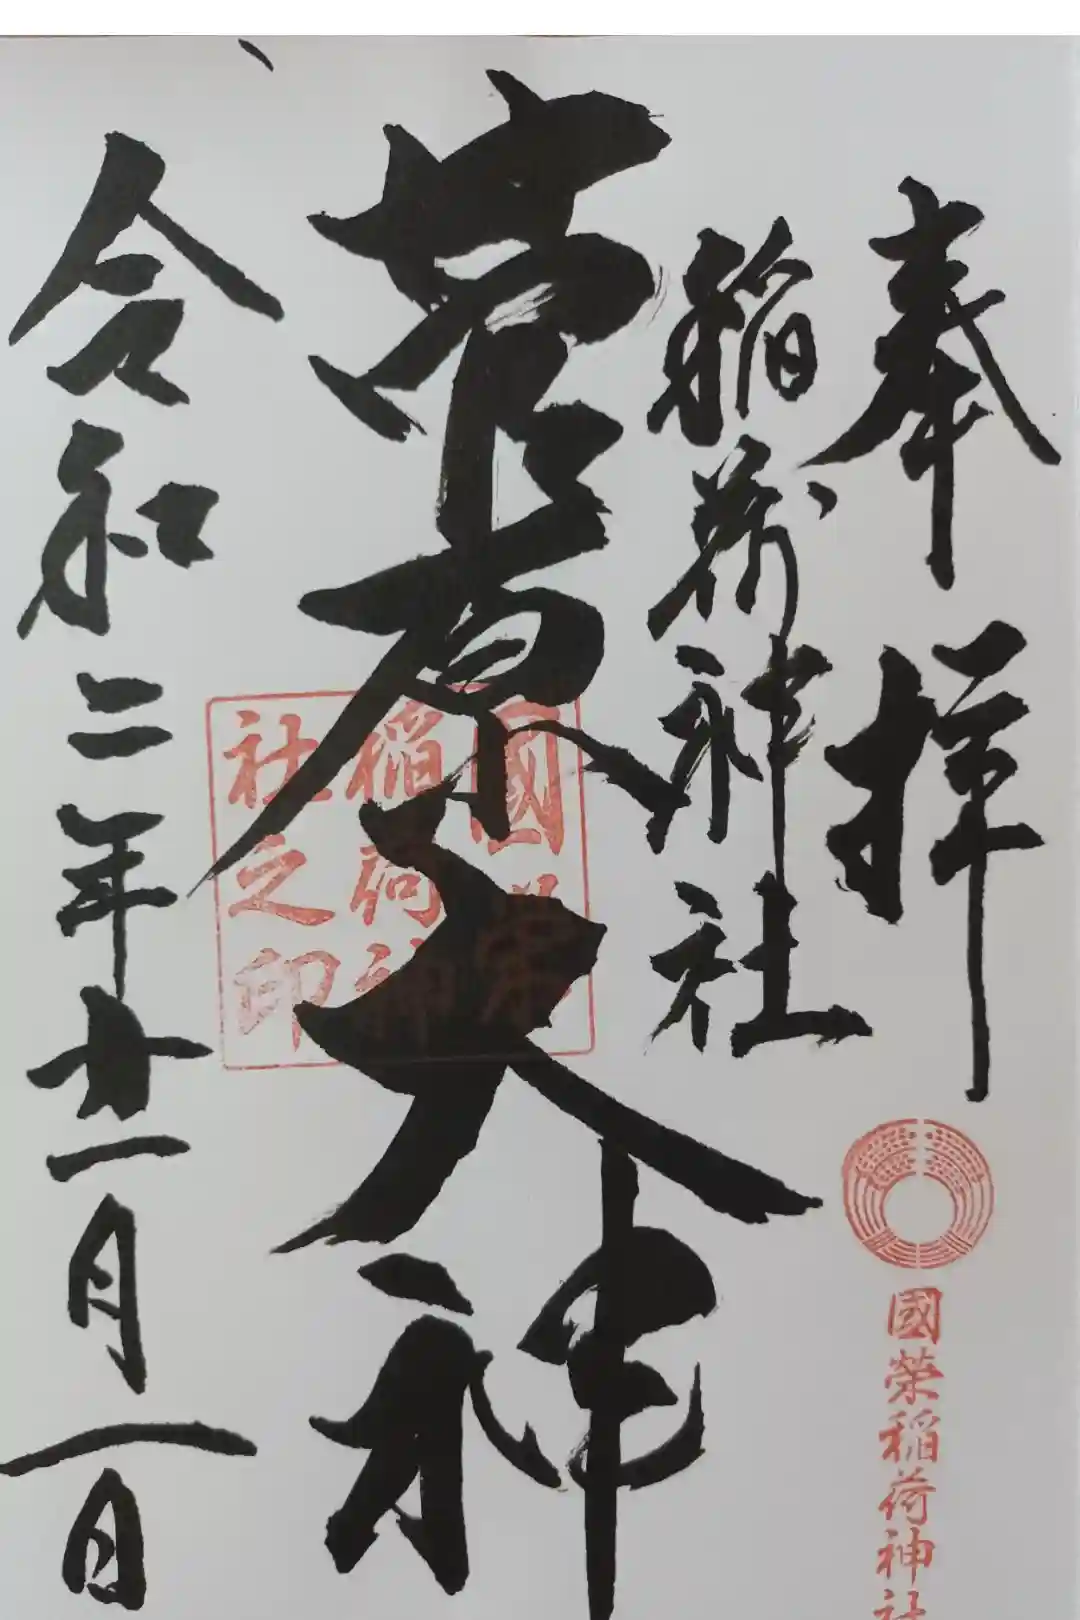 奉拝
國榮稲荷神社
稲荷神社
菅原大神
國榮
稲荷神
社之印
令和二年廿一月一日